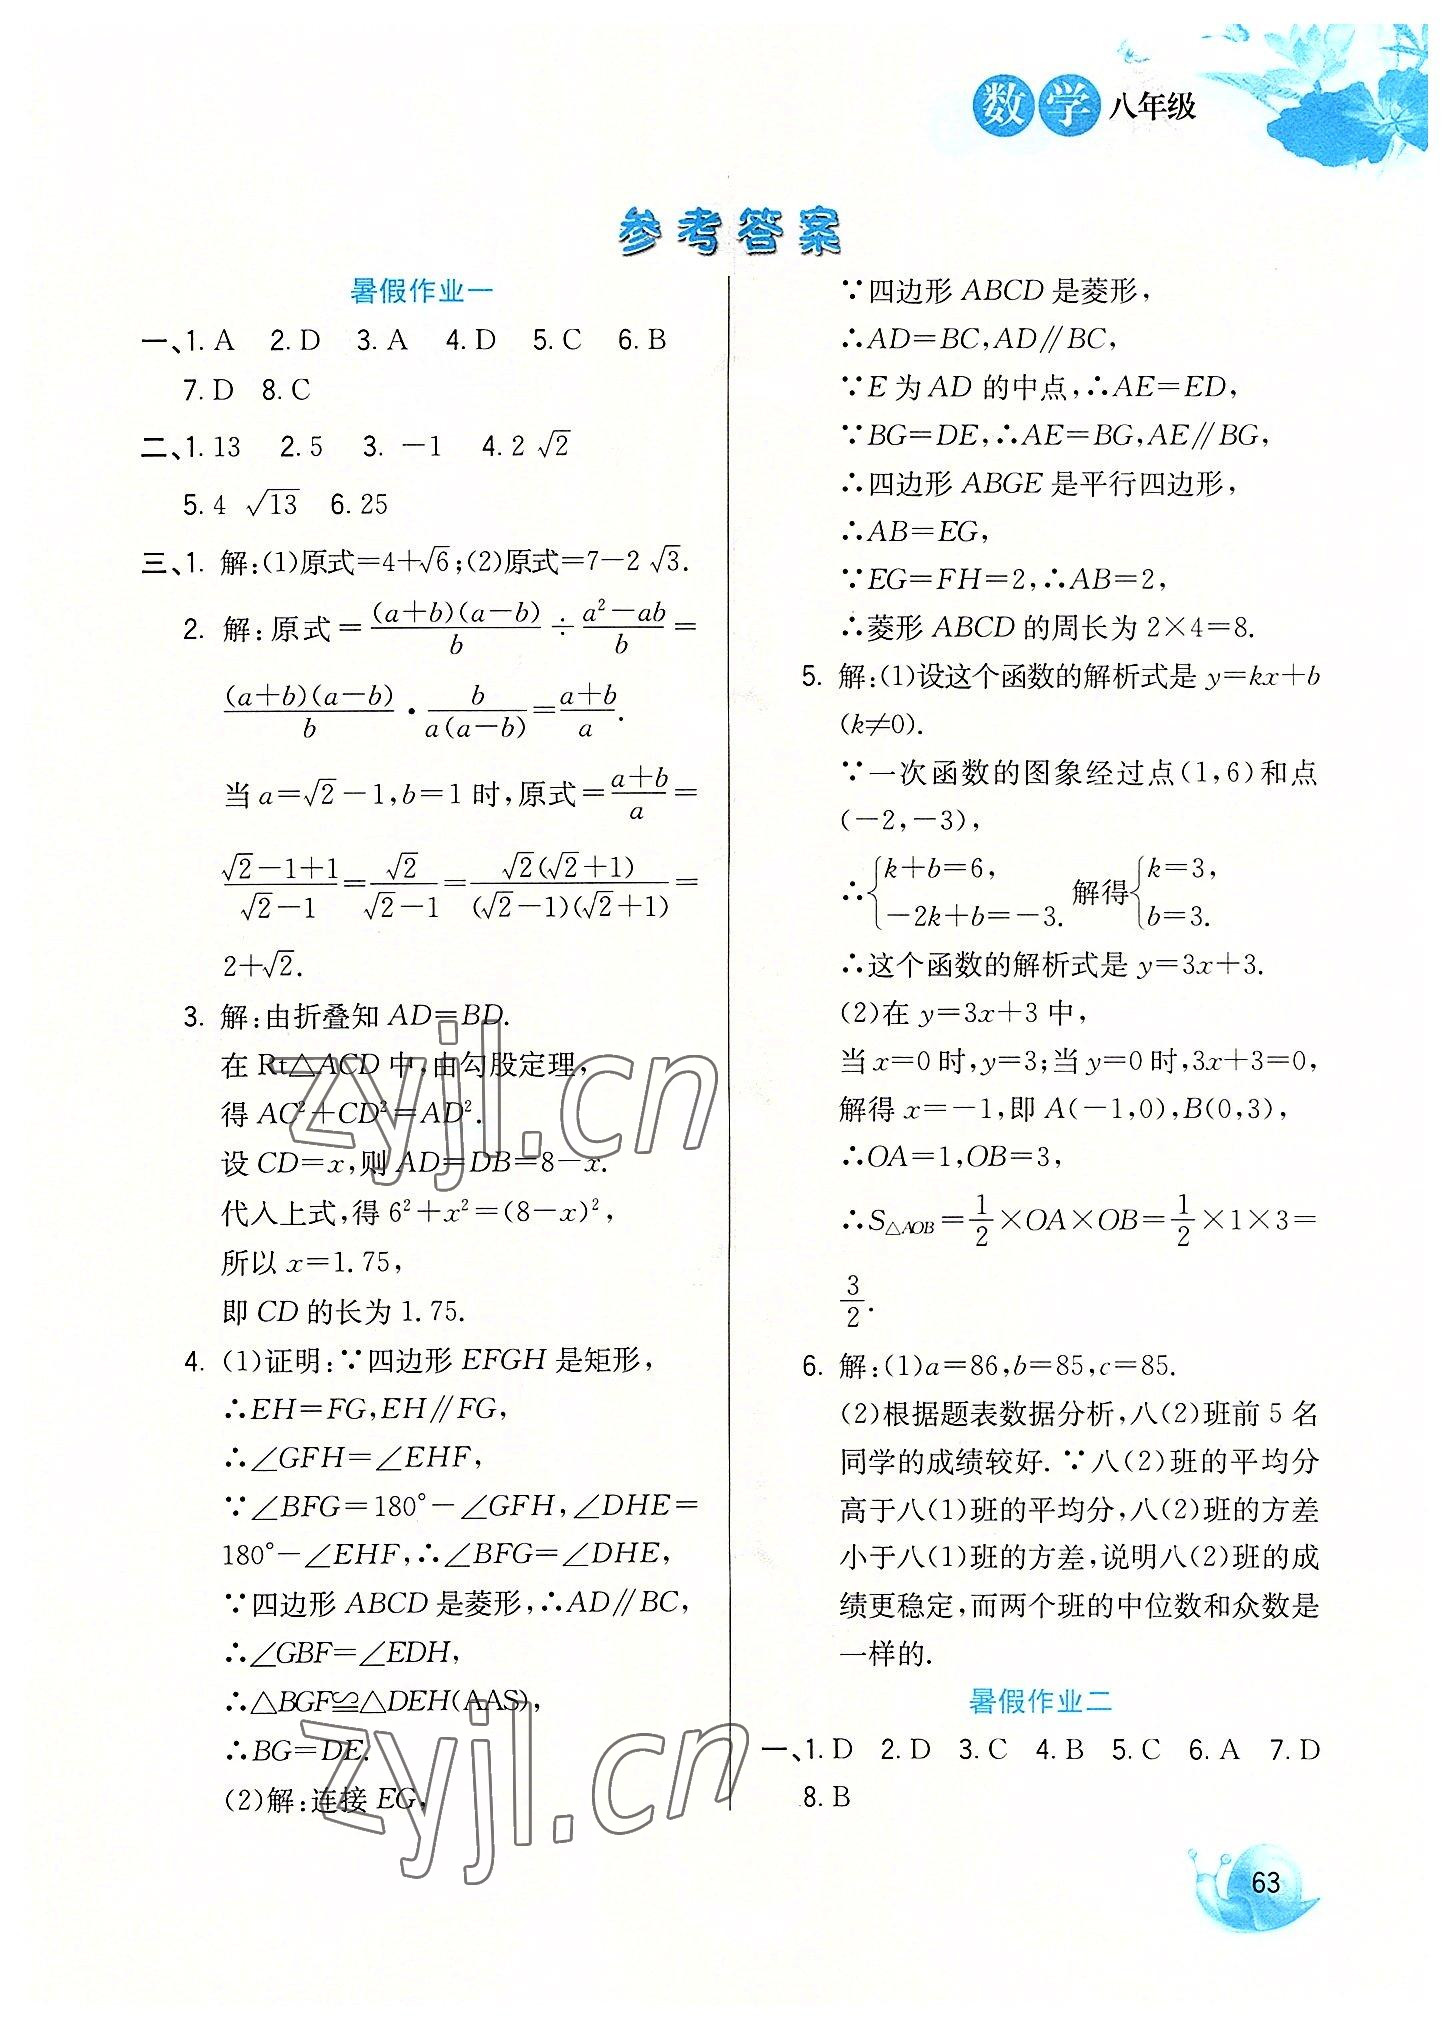 数学八年级
参考答案
暑假作业一
一、1. A 2. D 3. A 4. D 5. C 6. B
7. D 8. C
二、1. 13 2. 5 3. －1 4. 2√2
5. 4 √13 6. 25
三、1. 解:(1)原式=4+√6;(2)原式=7－2√3.
2. 解:原式=(a+b)(a－b)/b÷(a²－ab)/b=
(a+b)(a－b)/b·b/a(a－b)=(a+b)/a.
当a=√2－1,b=1时,原式=(a+b)/a=
(√2－1+1)/(√2－1)=√2/(√2－1)=√2(√2+1)/(√2－1)(√2+1)=
2+√2.
3. 解:由折叠知AD=BD.
在Rt△ACD中,由勾股定理,
得AC²+CD²=AD².
设CD=x,则AD=DB=8－x.
代入上式,得6²+x²=(8－x)²,
所以x=1.75,
即CD的长为1.75.
4. (1)证明:∵四边形EFGH是矩形,
∴EH=FG,EH∥FG,
∴∠GFH=∠EHF,
∵∠BFG=180°－∠GFH,∠DHE=
180°－∠EHF,∴∠BFG=∠DHE,
∵四边形ABCD是菱形,∴AD∥BC,
∴∠GBF=∠EDH,
∴△BGF≌△DEH(AAS),
∴BG=DE.
(2)解:连接EG,
∵四边形ABCD是菱形,
∴AD=BC,AD∥BC,
∵E为AD的中点,∴AE=ED,
∵BG=DE,∴AE=BG,AE∥BG,
∴四边形ABGE是平行四边形,
∴AB=EG,
∵EG=FH=2,∴AB=2,
∴菱形ABCD的周长为2×4=8.
5. 解:(1)设这个函数的解析式是y=kx+b
(k≠0).
∵一次函数的图象经过点(1,6)和点
(－2,－3),
∴{k+b=6, －2k+b=－3. 解得{k=3, b=3.
∴这个函数的解析式是y=3x+3.
(2)在y=3x+3中,
当x=0时,y=3;当y=0时,3x+3=0,
解得x=－1,即A(－1,0),B(0,3),
∴OA=1,OB=3,
∴S△AOB=1/2×OA×OB=1/2×1×3=
3/2.
6. 解:(1)a=86,b=85,c=85.
(2)根据题表数据分析,八(2)班前5名
同学的成绩较好.∵八(2)班的平均分
高于八(1)班的平均分,八(2)班的方差
小于八(1)班的方差,说明八(2)班的成
绩更稳定,而两个班的中位数和众数是
一样的.
暑假作业二
一、1. D 2. D 3. C 4. B 5. C 6. A 7. D
8. B
zyjl.cn
zyjl.cn
63